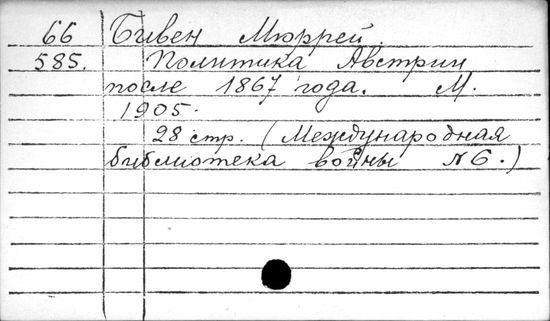 66 Бивен Мюррей.
585. Политика Австрии
после 1867 года. М.
1905.
28 стр. (Международная
библиотека войны N 6.)